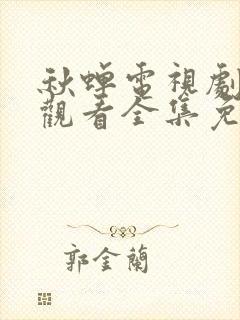 秋蟬電視劇
觀看全集免
郭金蘭